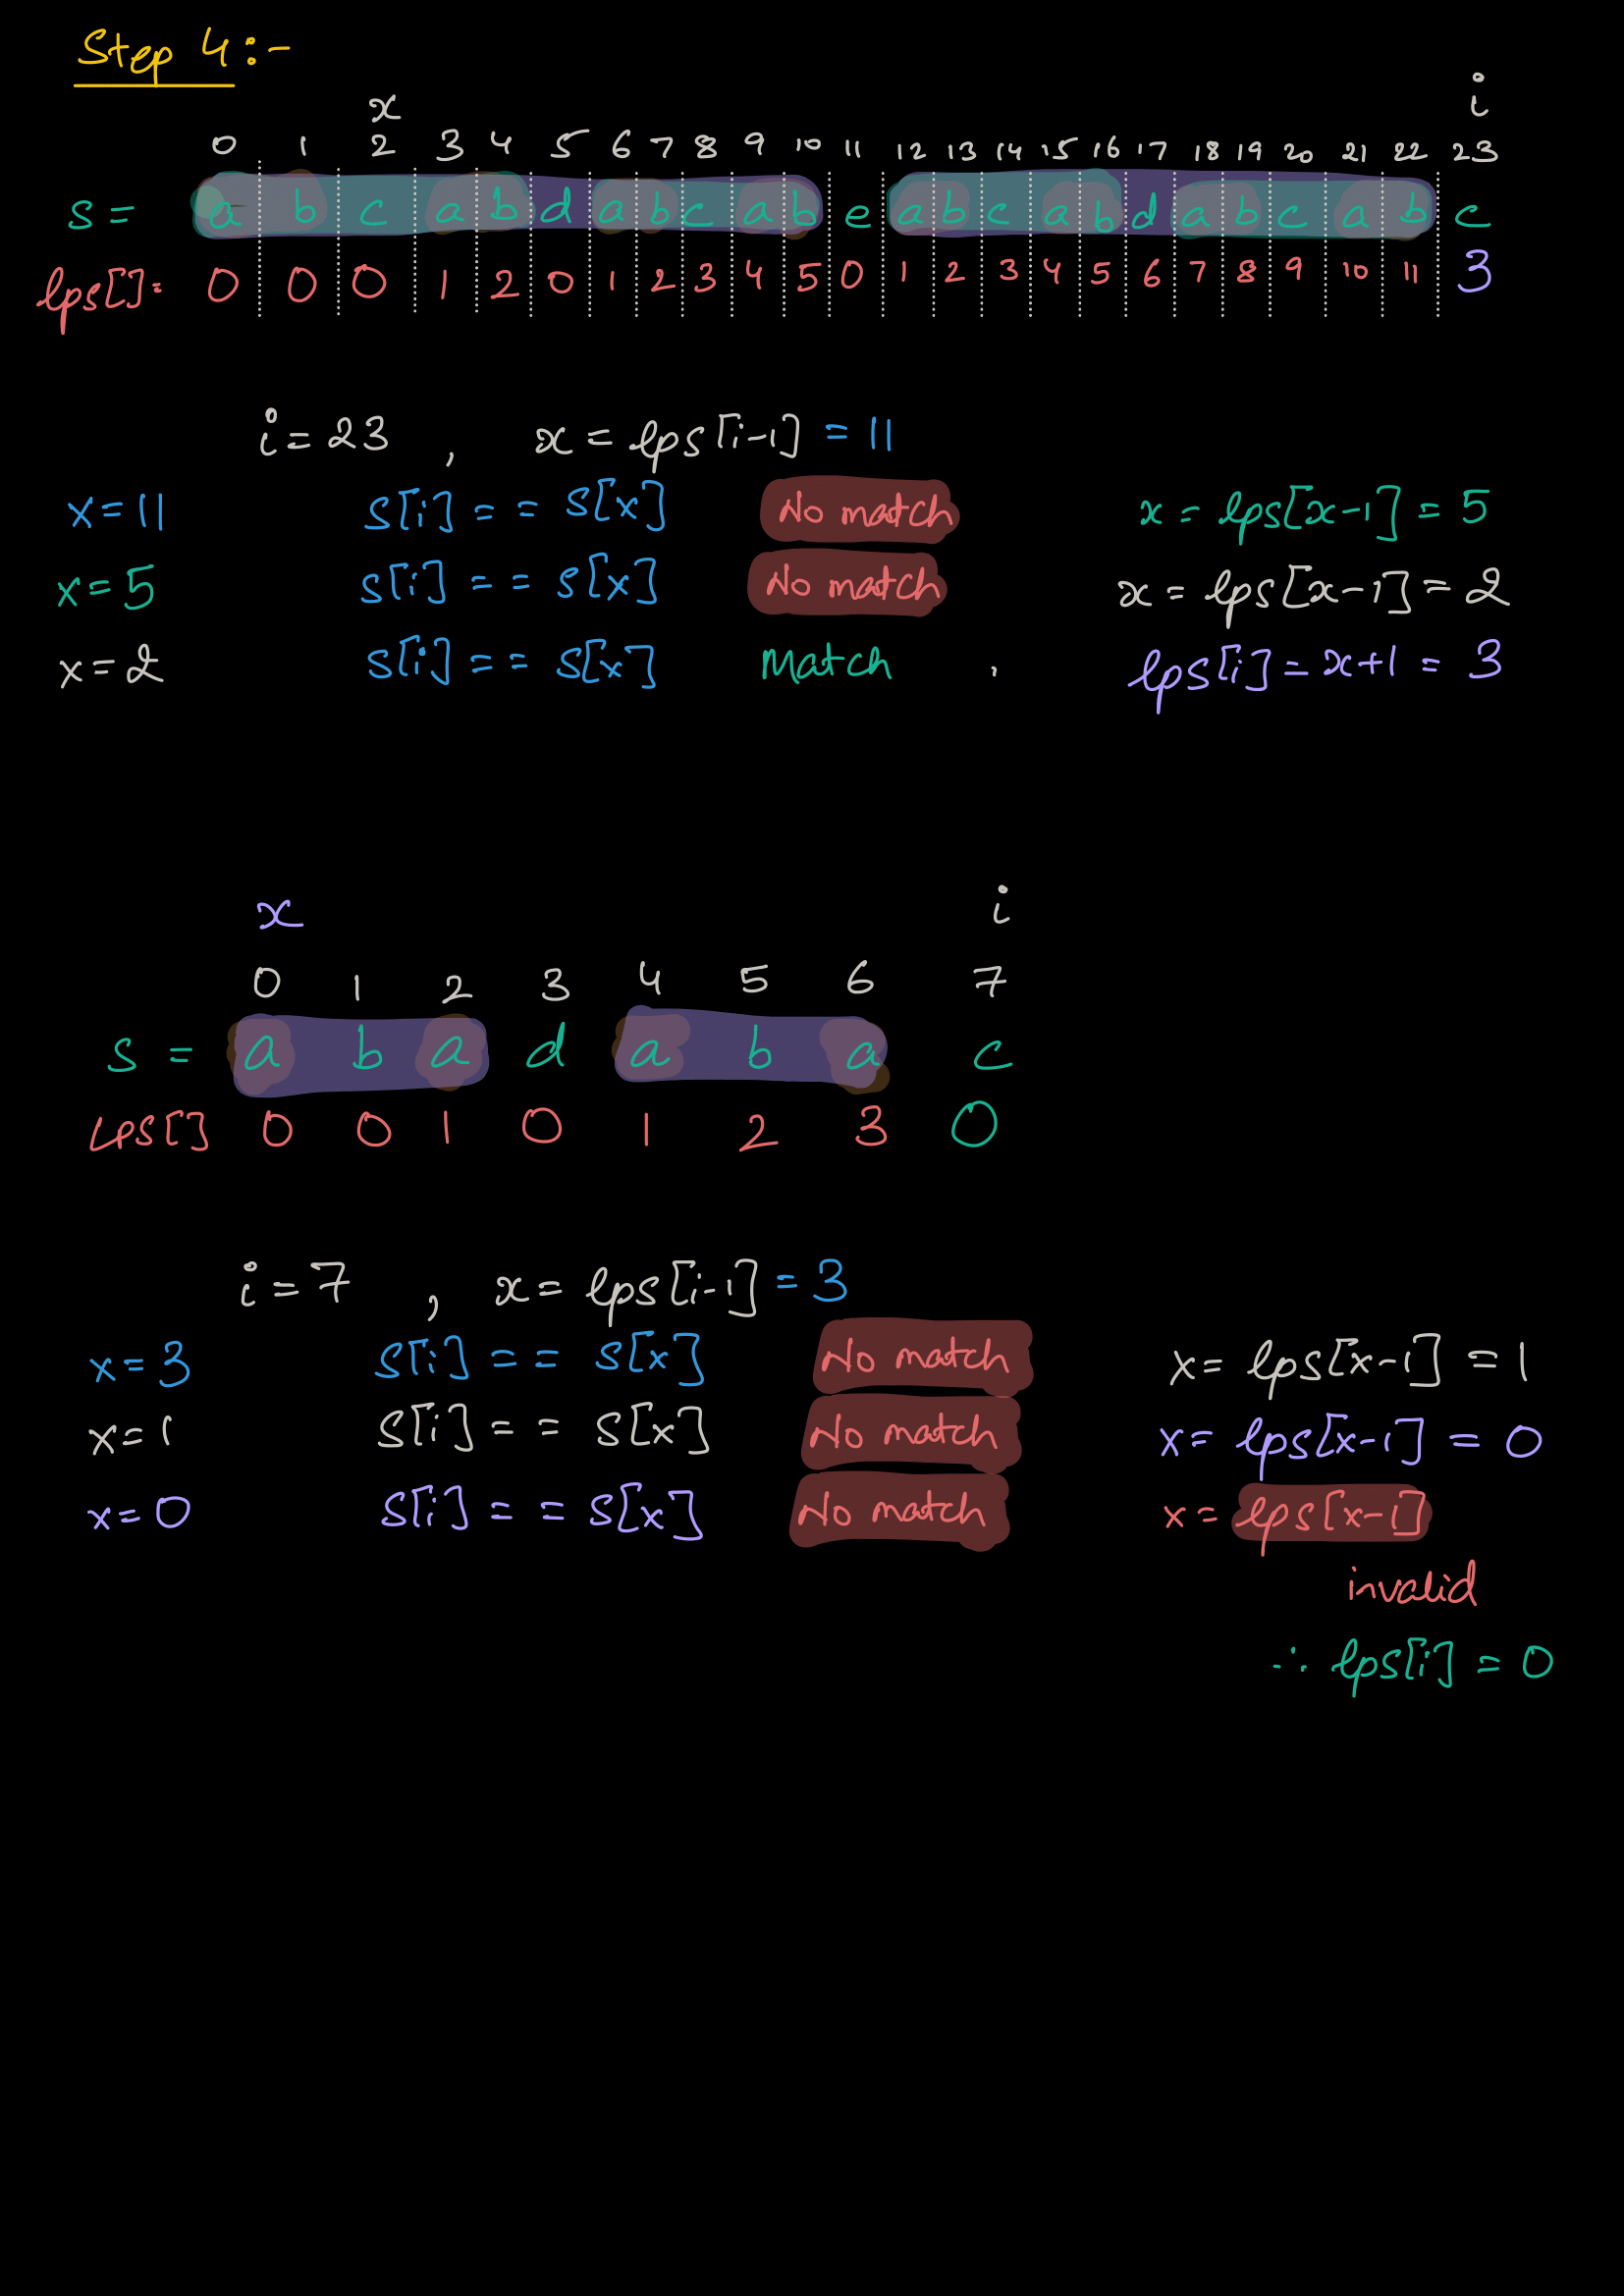 Step 4:-
x i
0 1 2 3 4 5 6 7 8 9 10 11 12 13 14 15 16 17 18 19 20 21 22 23
s = a b c a b d a b c a b e a b c a b d a b c a b c
lps[]= 0 0 0 1 2 0 1 2 3 4 5 0 1 2 3 4 5 6 7 8 9 10 11 3
i = 23 , x = lps[i-1] = 11
x = 11 s[i] == s[x] No match x = lps[x-1] = 5
x = 5 s[i] == s[x] No match x = lps[x-1] = 2
x = 2 s[i] == s[x] Match , lps[i] = x+1 = 3
x i
0 1 2 3 4 5 6 7
s = a b a d a b a c
lps[] 0 0 1 0 1 2 3 0
i = 7 , x = lps[i-1] = 3
x = 3 s[i] == s[x] No match x = lps[x-1] = 1
x = 1 s[i] == s[x] No match x = lps[x-1] = 0
x = 0 s[i] == s[x] No match x = lps[x-1]
invalid
∴ lps[i] = 0